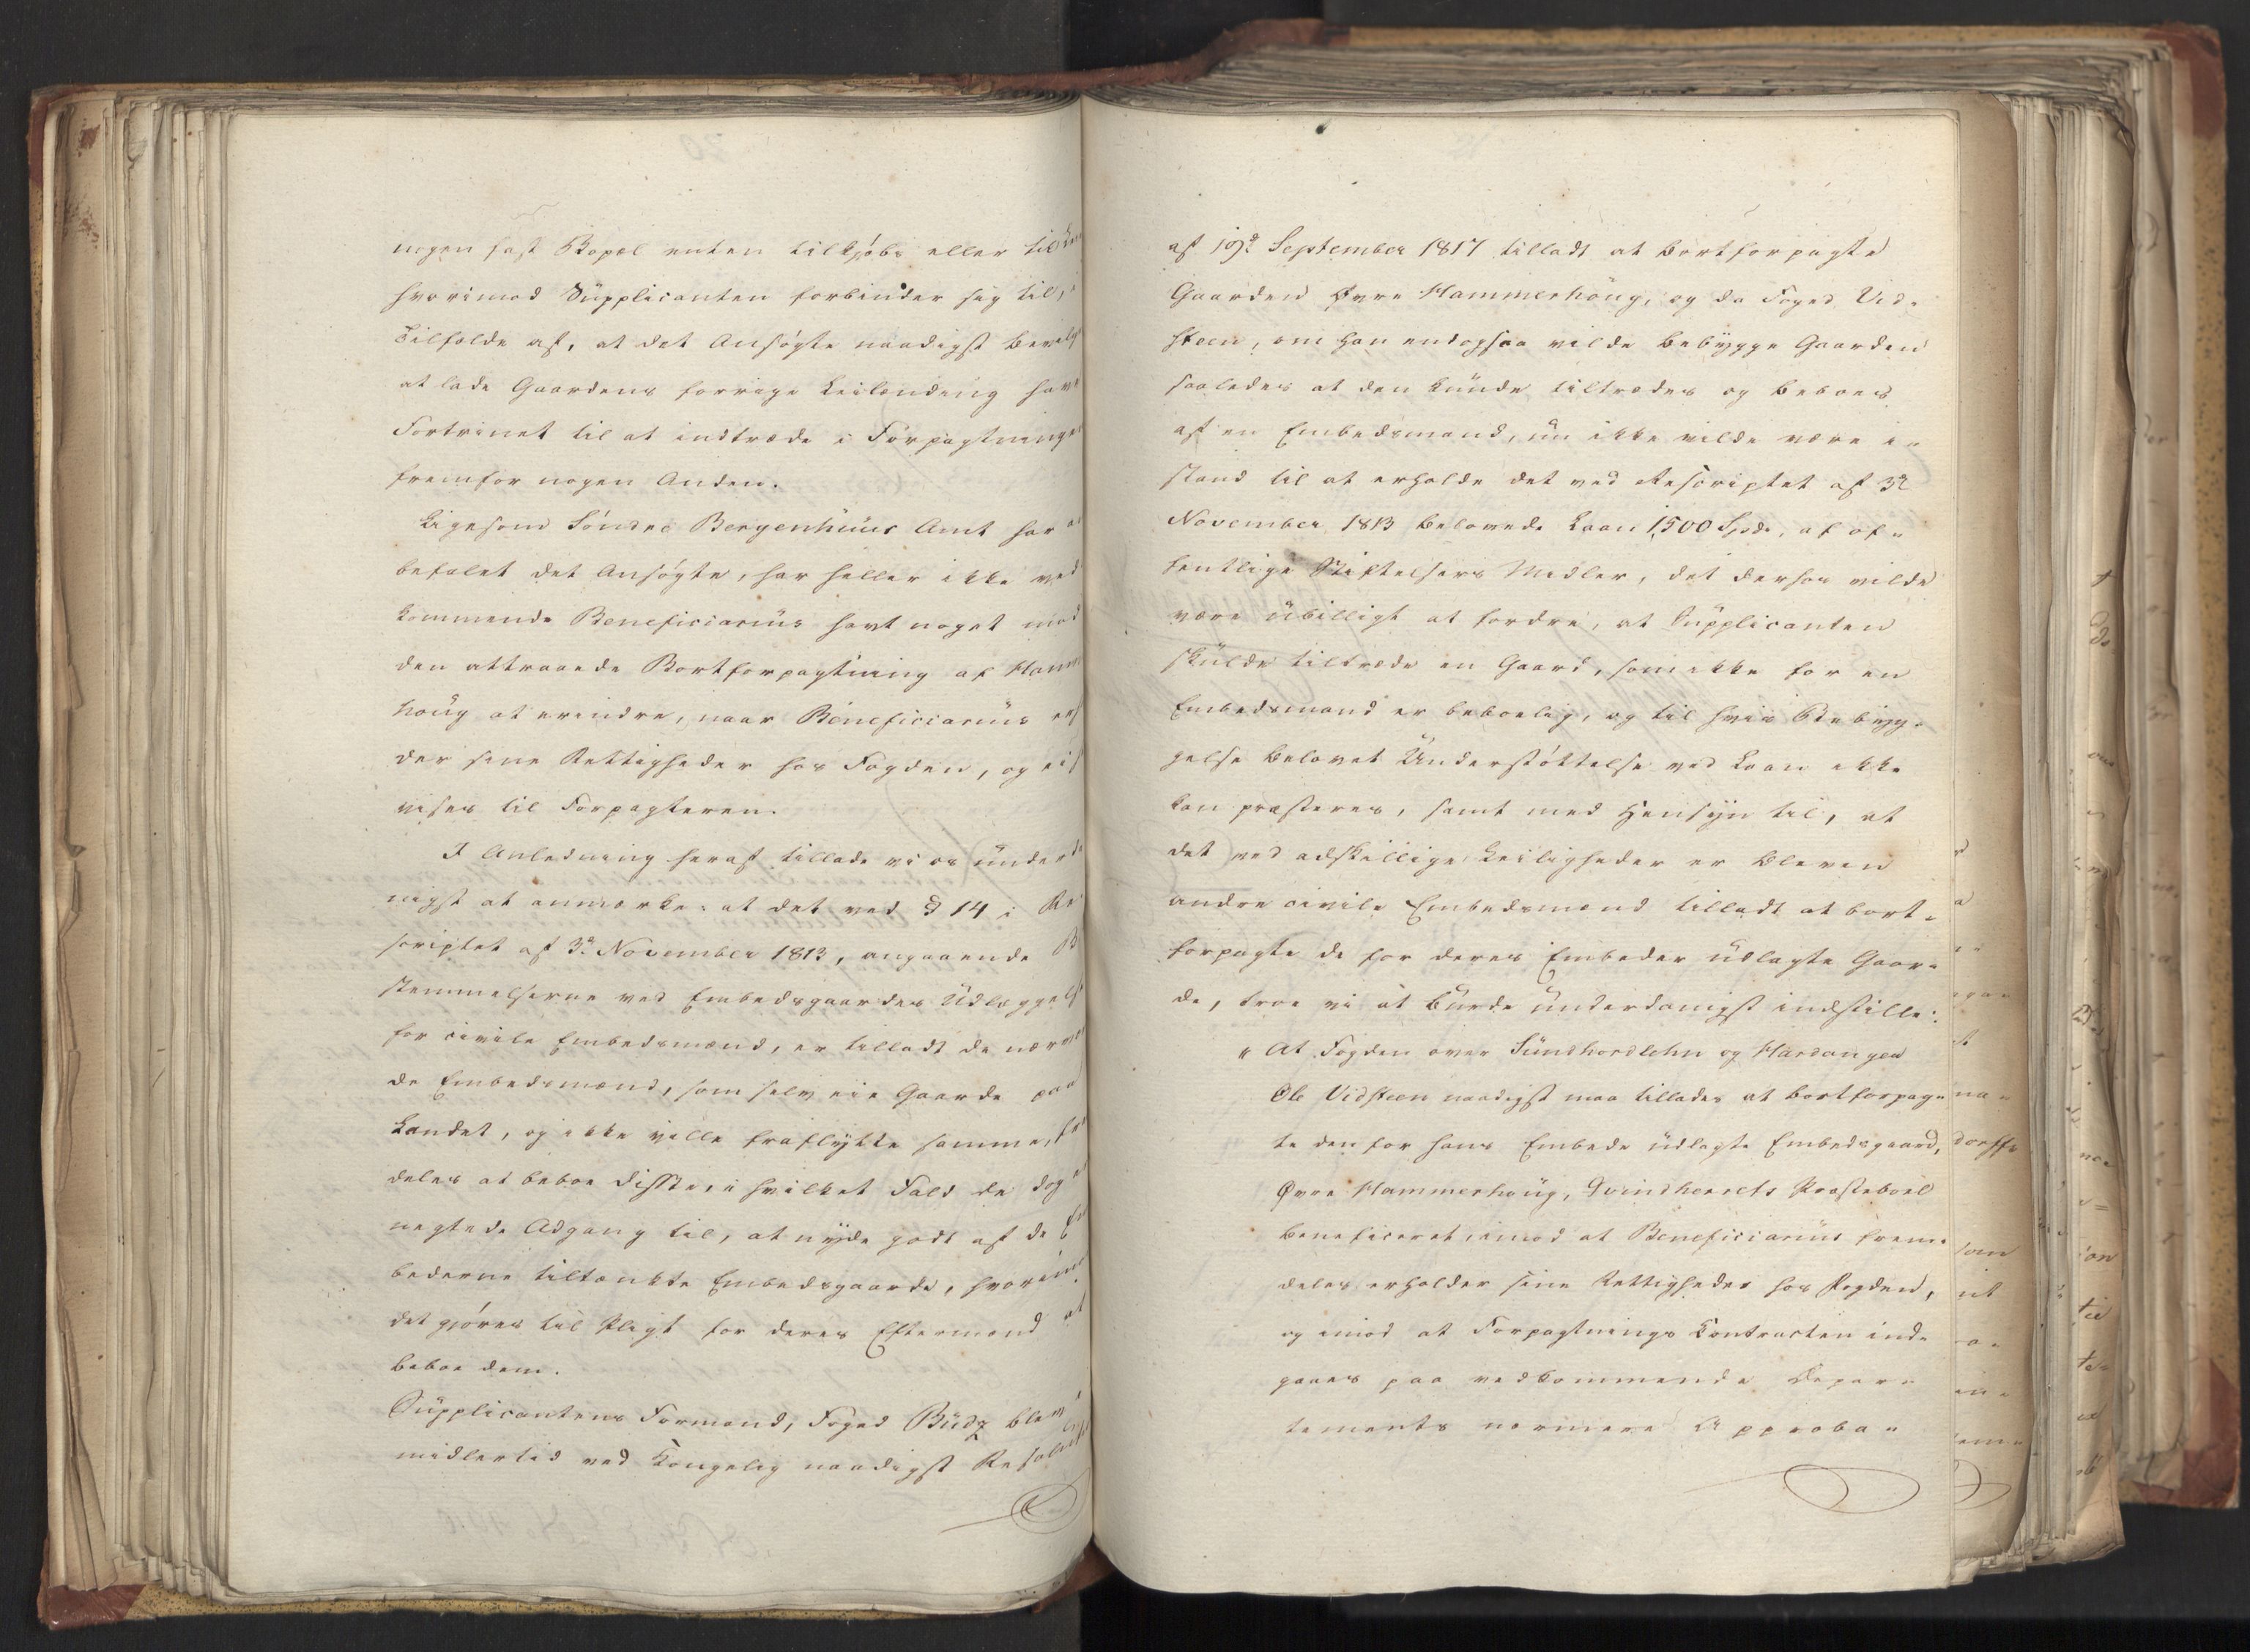 nogen fast Bopæl enten tilkjøbe eller til
hvorimod Supplicanten forbinder sig til, i
Tilfælde af, at det Ansøgte naadigst bevilges
at lade Gaardens forrige Leilænding have
Fortrinet til at indtræde i Forpagtningen
fremfor nogen Anden.
Ligesom Søndre Bergenhuus Amt har an
befalet det Ansøgte, har heller ikke ved
kommende Beneficiarius havt noget mod
den attraaede Bortforpagtning af Hammer
houg at erindre, naar Beneficiarius
der sine Rettigheder hos Fogden, og ei
vises til Forpagteren.
I Anledning heraf tillade vi os underda
nigst at anmærke: at det ved § 14 i Re
scriptet af 3de November 1813, angaaende Be
stemmelserne ved Embedsgaardes Udlæggelse
for civile Embedsmænd, er tilladt de nærvæ
de Embedsmænd, som selv eie Gaarde paa
Landet, og ikke ville fraflytte samme, frem
deles at beboe disse, i hvilket Fald de dog
negtede Adgang til, at nyde godt af de Em
bederne tiltænkte Embedsgaarde, hvorimod
det gjøres til Pligt for deres Eftermænd at
beboe dem.
Supplicantens Formand, Foged Budz blev
midlertid ved Kongelig naadigst Resolution
af 19de September 1817 tilladt at bortforpagte
Gaarden Øvre Hammerhoug, og da Foged Vid-
steen, om han endogsaa vilde bebygge Gaarden
saaledes at den kunde tiltrædes og beboes
af en Embedsmand, nu ikke vilde være i-
stand til at erholde det ved Rescriptet af 3de
November 1813 belovede Laan 1,500 Spd., af of-
fentlige Stiftelsers Midler, det derhos vilde
være ubilligt at fordre, at Supplicanten
skulde tiltræde en Gaard, som ikke for en
Embedsmand er beboelig, og til hvis Bebyg-
gelse belovet Understøttelse ved Laan ikke
kan præsteres, samt med Hensyn til, at
det ved adskillige Leiligheder er bleven
andre civile Embedsmænd tilladt at bort-
forpagte de for deres Embeder udlagte Gaar-
de, troe vi at burde underdanigst indstille:
" At Fogden over Sundhordlehn og Hardanger
Ole Vidsteen naadigst maa tillades at bortforpag-
te den for hans Embede udlagte Embedsgaard,
Øvre Hammerhoug, Qvindherrets Præsteboel
beneficeret, imod at Beneficiarius frem-
deles erholder sine Rettigheder hos Fogden,
og imod at Forpagtnings Contracten ind-
gaaes paa vedkommende Depar-
tements nærmere Approba-